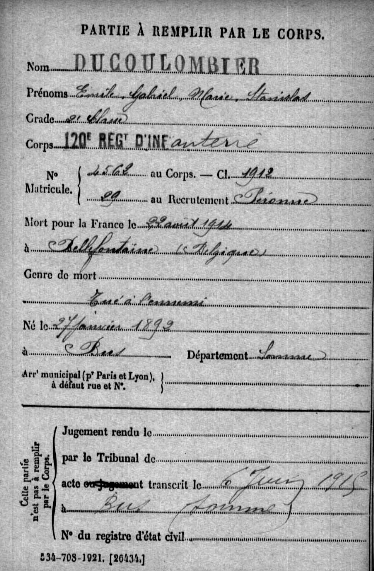 PARTIE À REMPLIR PAR LE CORPS.
Nom DUCOULOMBIER
Prénoms Emile Gabriel Marie Stanislas
Grade 2e classe
Corps 120e RÉGt D'INFanterie
No Matricule. 4562 au Corps. — Cl. 1912
29 au Recrutement Péronne
Mort pour la France le 22 août 1914
à Bellefontaine (Belgique)
Genre de mort
Tué à l'ennemi
Né le 27 janvier 1892
à Bus Département Somme
Arrt municipal (pr Paris et Lyon), à défaut rue et No.
Cette partie n'est pas à remplir par le Corps.
Jugement rendu le
par le Tribunal de
acte ou jugement transcrit le 6 Juin 1915
à Bus Somme
No du registre d'état civil
534-708-1921. [26434.]